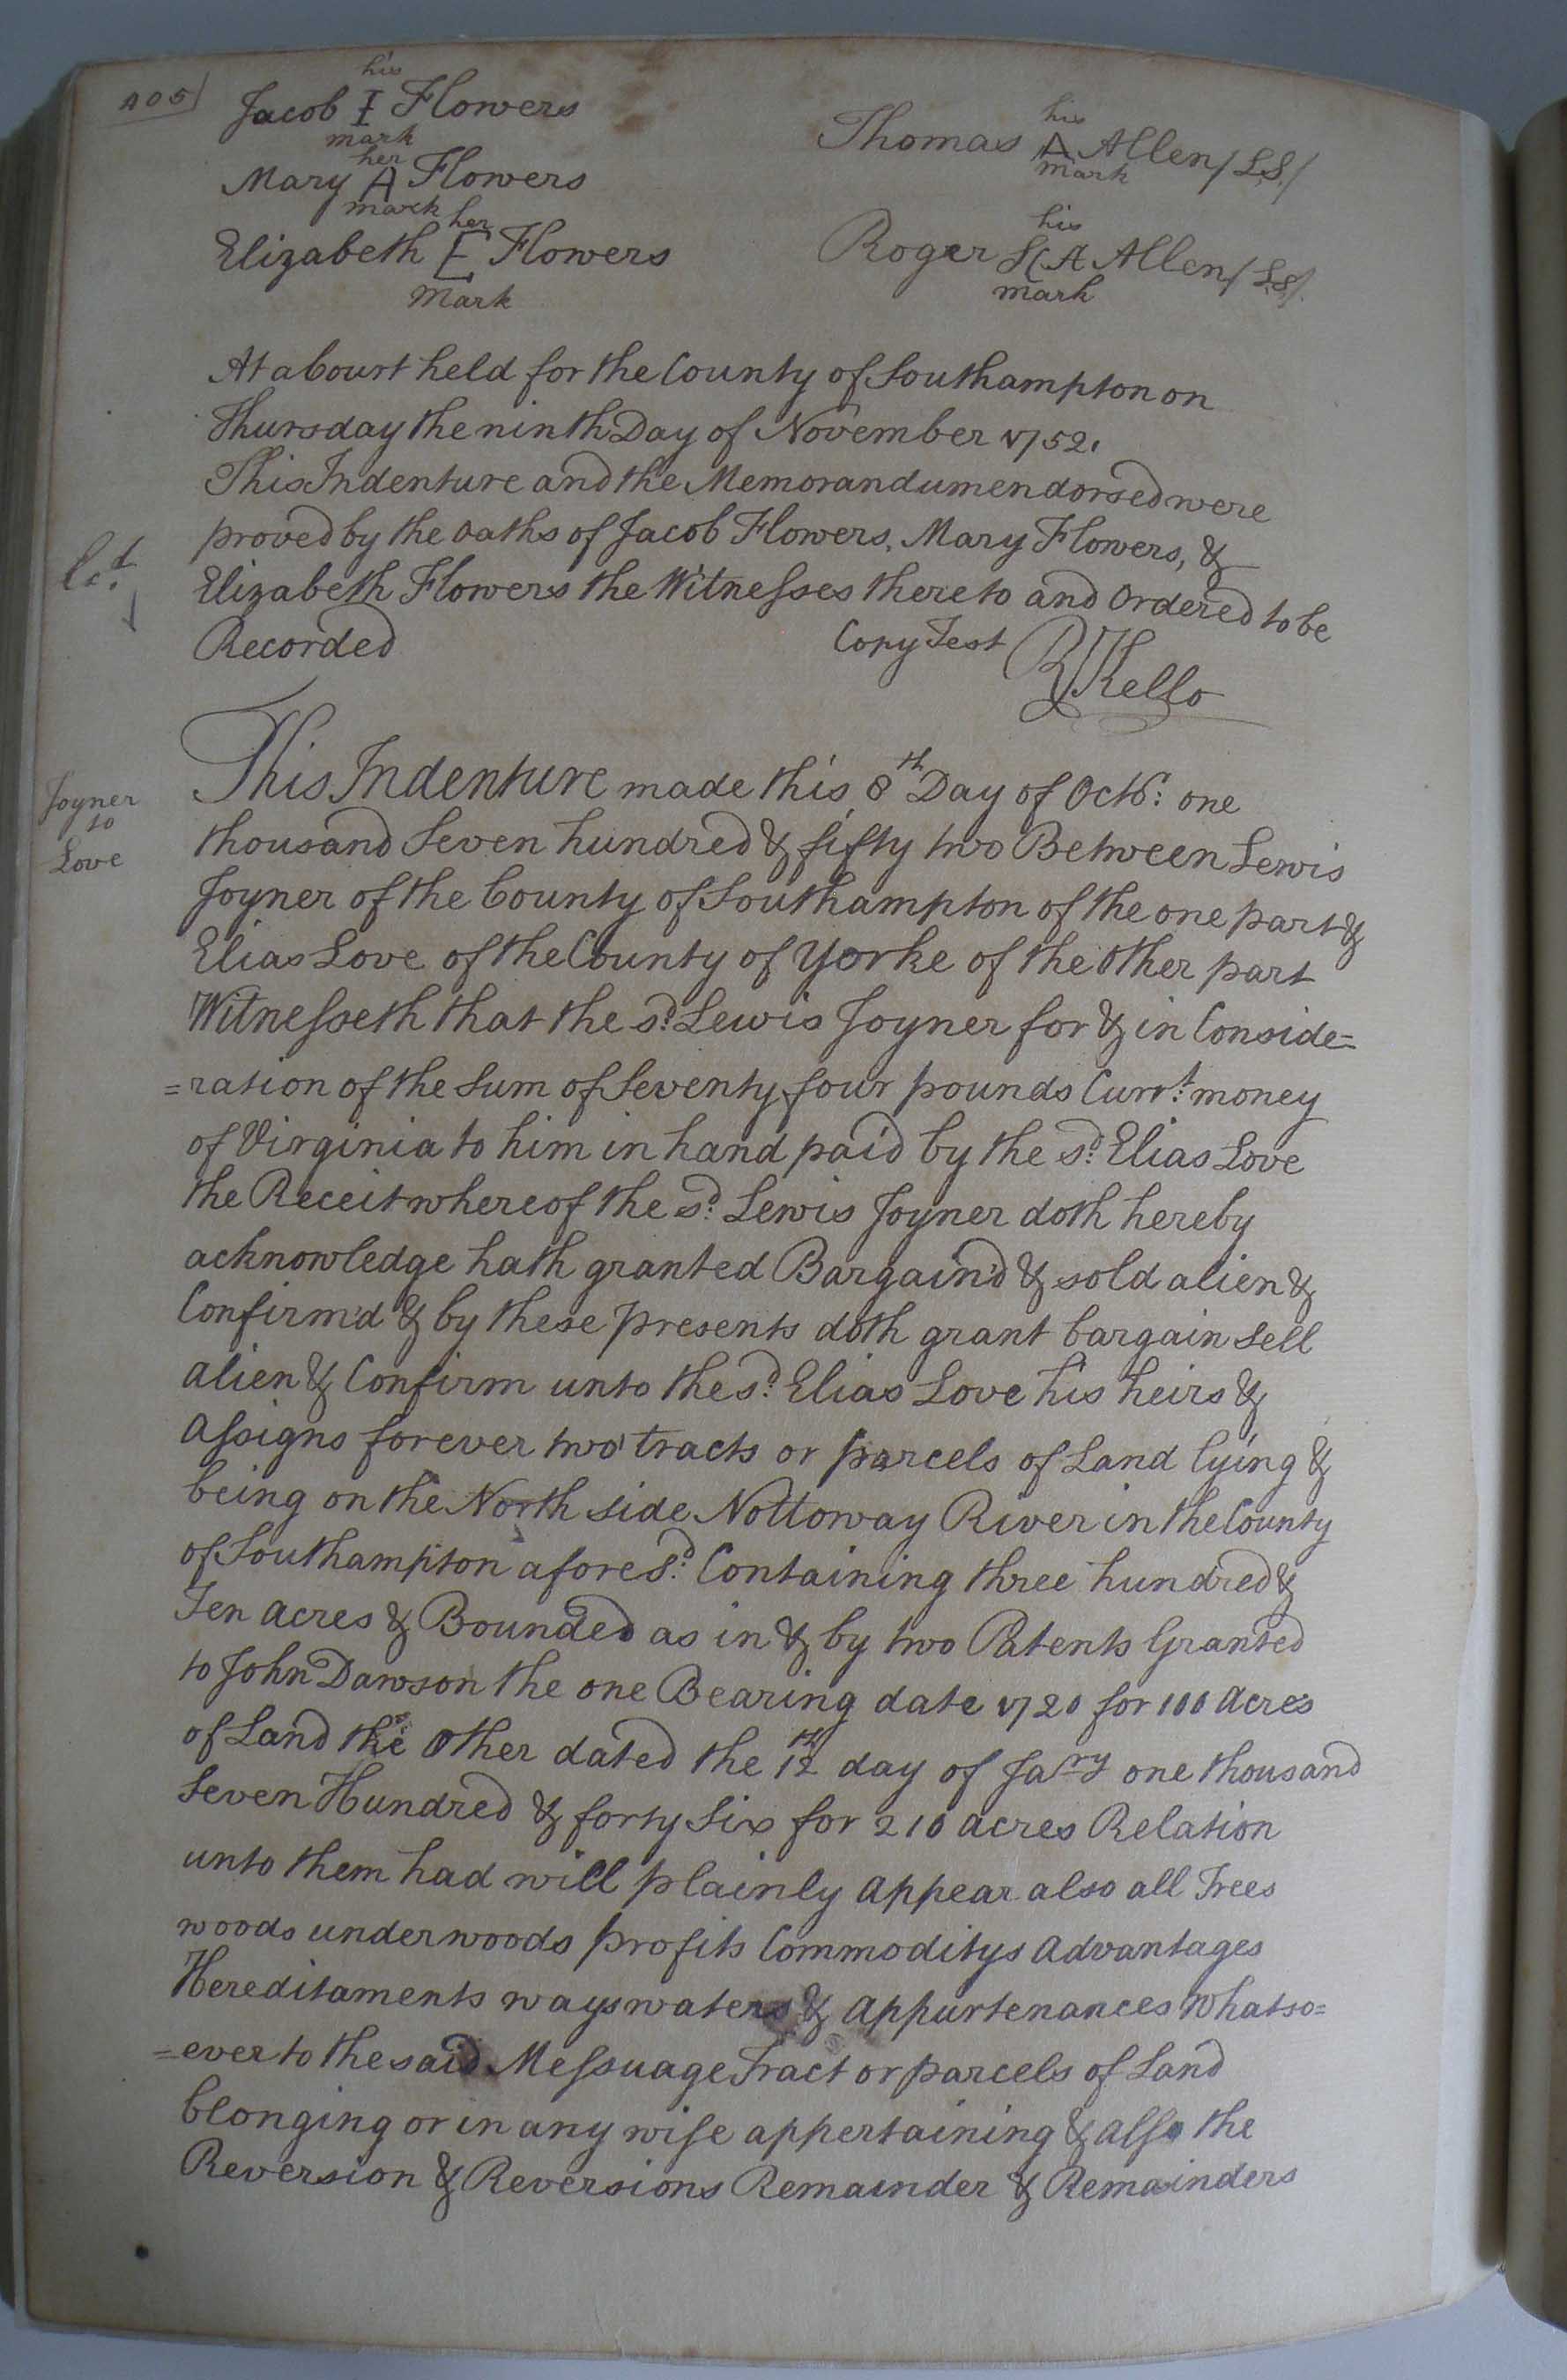 405
his
Jacob I Flowers
mark
her
Mary A Flowers
mark
her
Elizabeth E Flowers
Mark
his
Thomas A Allen / L.S. /
mark
his
Roger A Allen / L.S. /
mark
At a Court held for the County of Southampton on
Thursday the ninth Day of November 1752.
This Indenture and the Memorandum endorsed were
proved by the Oaths of Jacob Flowers, Mary Flowers, &
Elizabeth Flowers the Witnesses thereto and Ordered to be
Recorded Copy Test R Kello
Joyner
to
Love
This Indenture made this 8th Day of Octbr: one
thousand Seven hundred & fifty two Between Lewis
Joyner of the County of Southampton of the one part &
Elias Love of the County of Yorke of the Other part
Witnesseth that the sd: Lewis Joyner for & in Conside=
=ration of the Sum of Seventy four pounds Currt: money
of Virginia to him in hand paid by the sd: Elias Love
the Receit whereof the sd: Lewis Joyner doth hereby
acknowledge hath granted Bargain'd & sold alien &
Confirm'd & by these presents doth grant bargain Sell
alien & Confirm unto the sd: Elias Love his heirs &
Assigns forever two tracts or parcels of Land lying &
being on the North side Nottoway River in the County
of Southampton afores'd: Containing three hundred &
Ten acres & Bounded as in & by two Patents Granted
to John Dawson the one Bearing date 1720 for 100 Acres
of Land the Other dated the 12th day of Jary one thousand
Seven Hundred & forty Six for 210 acres Relation
unto them had will plainly Appear also all Trees
woods underwoods profits Commoditys Advantages
Hereditaments ways waters & Appurtenances Whatso=
=ever to the said Messuage Tract or parcels of Land
blonging or in any wise appertaining & also the
Reversion & Reversions Remainder & Remainders